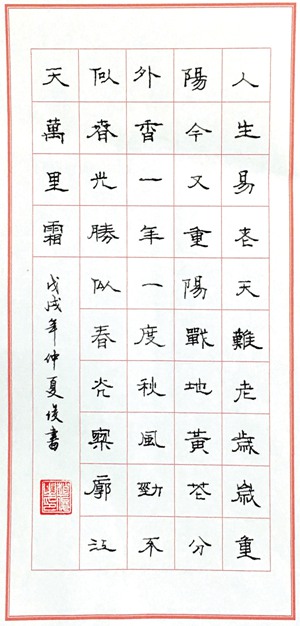 人生易老天難老歲歲重
陽今又重陽戰地黃花分
外香一年一度秋風勁不
似春光勝似春光寥廓江
天萬里霜
戊戌年仲夏俊書